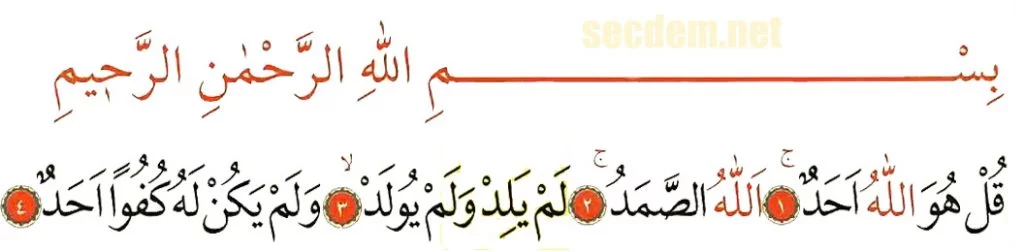 secdem.net
بِسْــــــــــــــــــــمِ اللّٰهِ الرَّحْمٰنِ الرَّح۪يمِ
قُلْ هُوَ اللّٰهُ اَحَدٌۚ ﴿١﴾ اَللّٰهُ الصَّمَدُۚ ﴿٢﴾ لَمْ يَلِدْ وَلَمْ يُولَدْۙ ﴿٣﴾ وَلَمْ يَكُنْ لَهُ كُفُوًا اَحَدٌ ﴿٤﴾